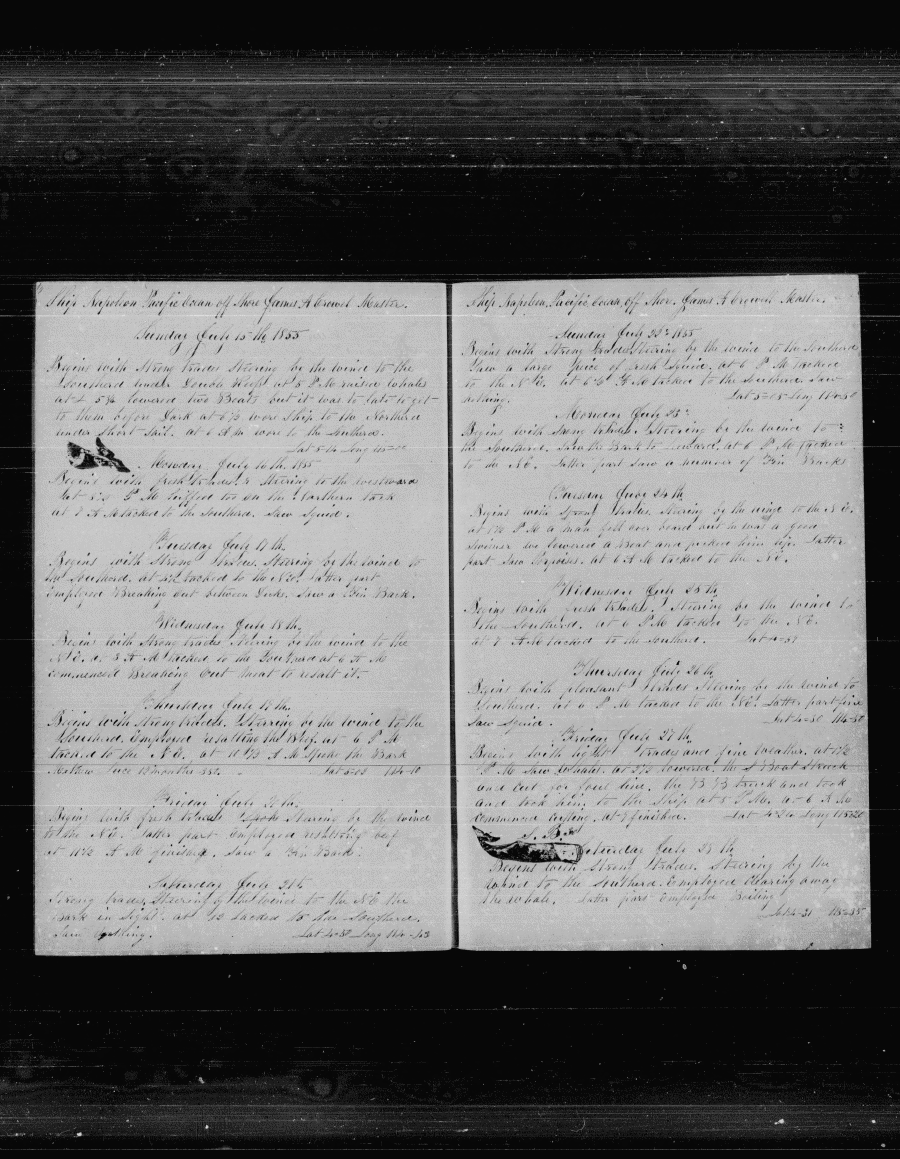 Ship Napoleon Pacific Ocean off Shore James A Crowel Master.
Sunday July 15th 1855
Begins with Strong trades Steering by the wind to the
Southerd under Double Reefs at 5 P M raised whales
at 5¾ lowered two Boats but it was to late to get
to them before Dark at 6½ wore Ship to the Northerd
under Short Sail. at 6 A M wore to the Southerd.
Lat 5-14 Long
Monday July 16th 1855
Begins with fresh trades & Steering to the westward
at 5 P M luffed too on the Northern tack
at 7 A M tacked to the Southerd. Saw Squid.
Tuesday July 17th
Begins with Strong trades. Steering by the wind to
the Southerd. at tacked to the N E. latter part
Employed Breaking Out between Decks. Saw a Fin Back.
Wednesday July 18th
Begins with Strong trades Steering by the wind to the
N E. at 3 A M tacked to the Southerd at 6 A M
commenced Breaking Out meat to resalt it.
Thursday July 19th
Begins with Strong trades. Steering by the wind to the
Southerd. Employed resalting the Beef. at 6 P M
tacked to the N E. at 10 ½ A M Spoke the Bark
Mathew Luce
Friday July 20th
Begins with fresh trades Steering by the wind
to the N E. latter part Employed resalting beef
at 11½ A M finished. Saw a Fin Back.
Saturday July 21st
Strong trades Steering by the wind to the N E the
Bark in Sight. at 12 tacked to the Southerd.
Saw Nothing. Lat 4-50 Long 114-
Ship Napoleon Pacific Ocean off Shore. James A Crowell Master.
Sunday July 22d 1855
Begins with Strong trades Steering by the wind to the Southerd
Saw a large piece of fresh Squid. at 6 P M tacked
to the N E. at 6½ A M tacked to the Southerd. Saw
nothing. Lat 5-05 Long
Monday July 23d
Begins with Strong trades. Steering by the wind to
the Southerd. Saw the Bark to Leeward. at 6 P M tacked
to the N E. latter part Saw a number of Fin Backs
Tuesday July 24th
Begins with Strong trades. Steering by the wind to the N E.
at P M a man fell over board but he was a good
Swimer we lowered a Boat and picked him up. latter
part Saw Porpoises. at 6 A M tacked to the N E.
Wednesday July 25th
Begins with fresh trades. Steering by the wind to
the Southerd. at 6 P M tacked to the N E.
at 7 A M tacked to the Southerd. Lat 4-57
Thursday July 26th
Begins with pleasant trades Steering by the wind to
Southerd. at 6 P M tacked to the N E. Latter part fine
Saw Squid. Lat 4-50 114-50
Friday July 27th
Begins with light trades and fine weather. at 1½
P M Saw whales. at 2½ lowered. the S Boat Struck
and cut for foul line. the B B Struck and took
and took him to the Ship at 5 P M. at 6 A M
Commenced cutting. at 9 finished. Lat 4-24 Long
S. B.
Saturday July 28th
Begins with Strong trades. Steering by the
wind to the Southerd. Employed Clearing away
the whale. latter part Employed Boiling
Lat 4-31